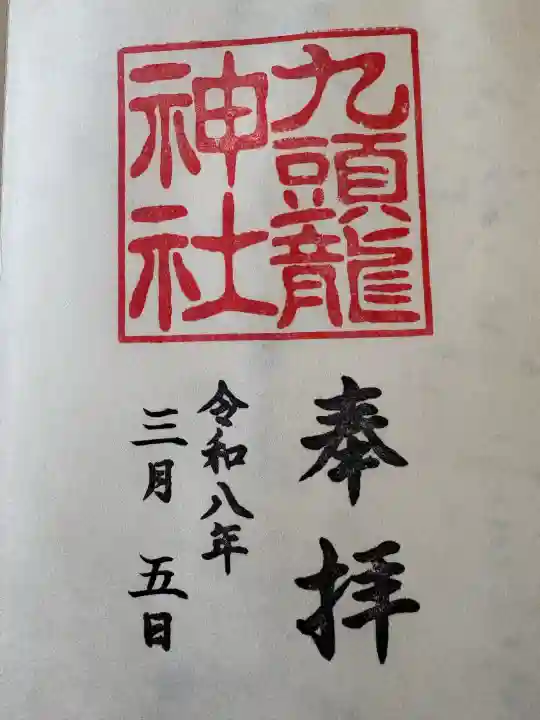 九頭龍
神社
奉拝
令和八年
三月五日